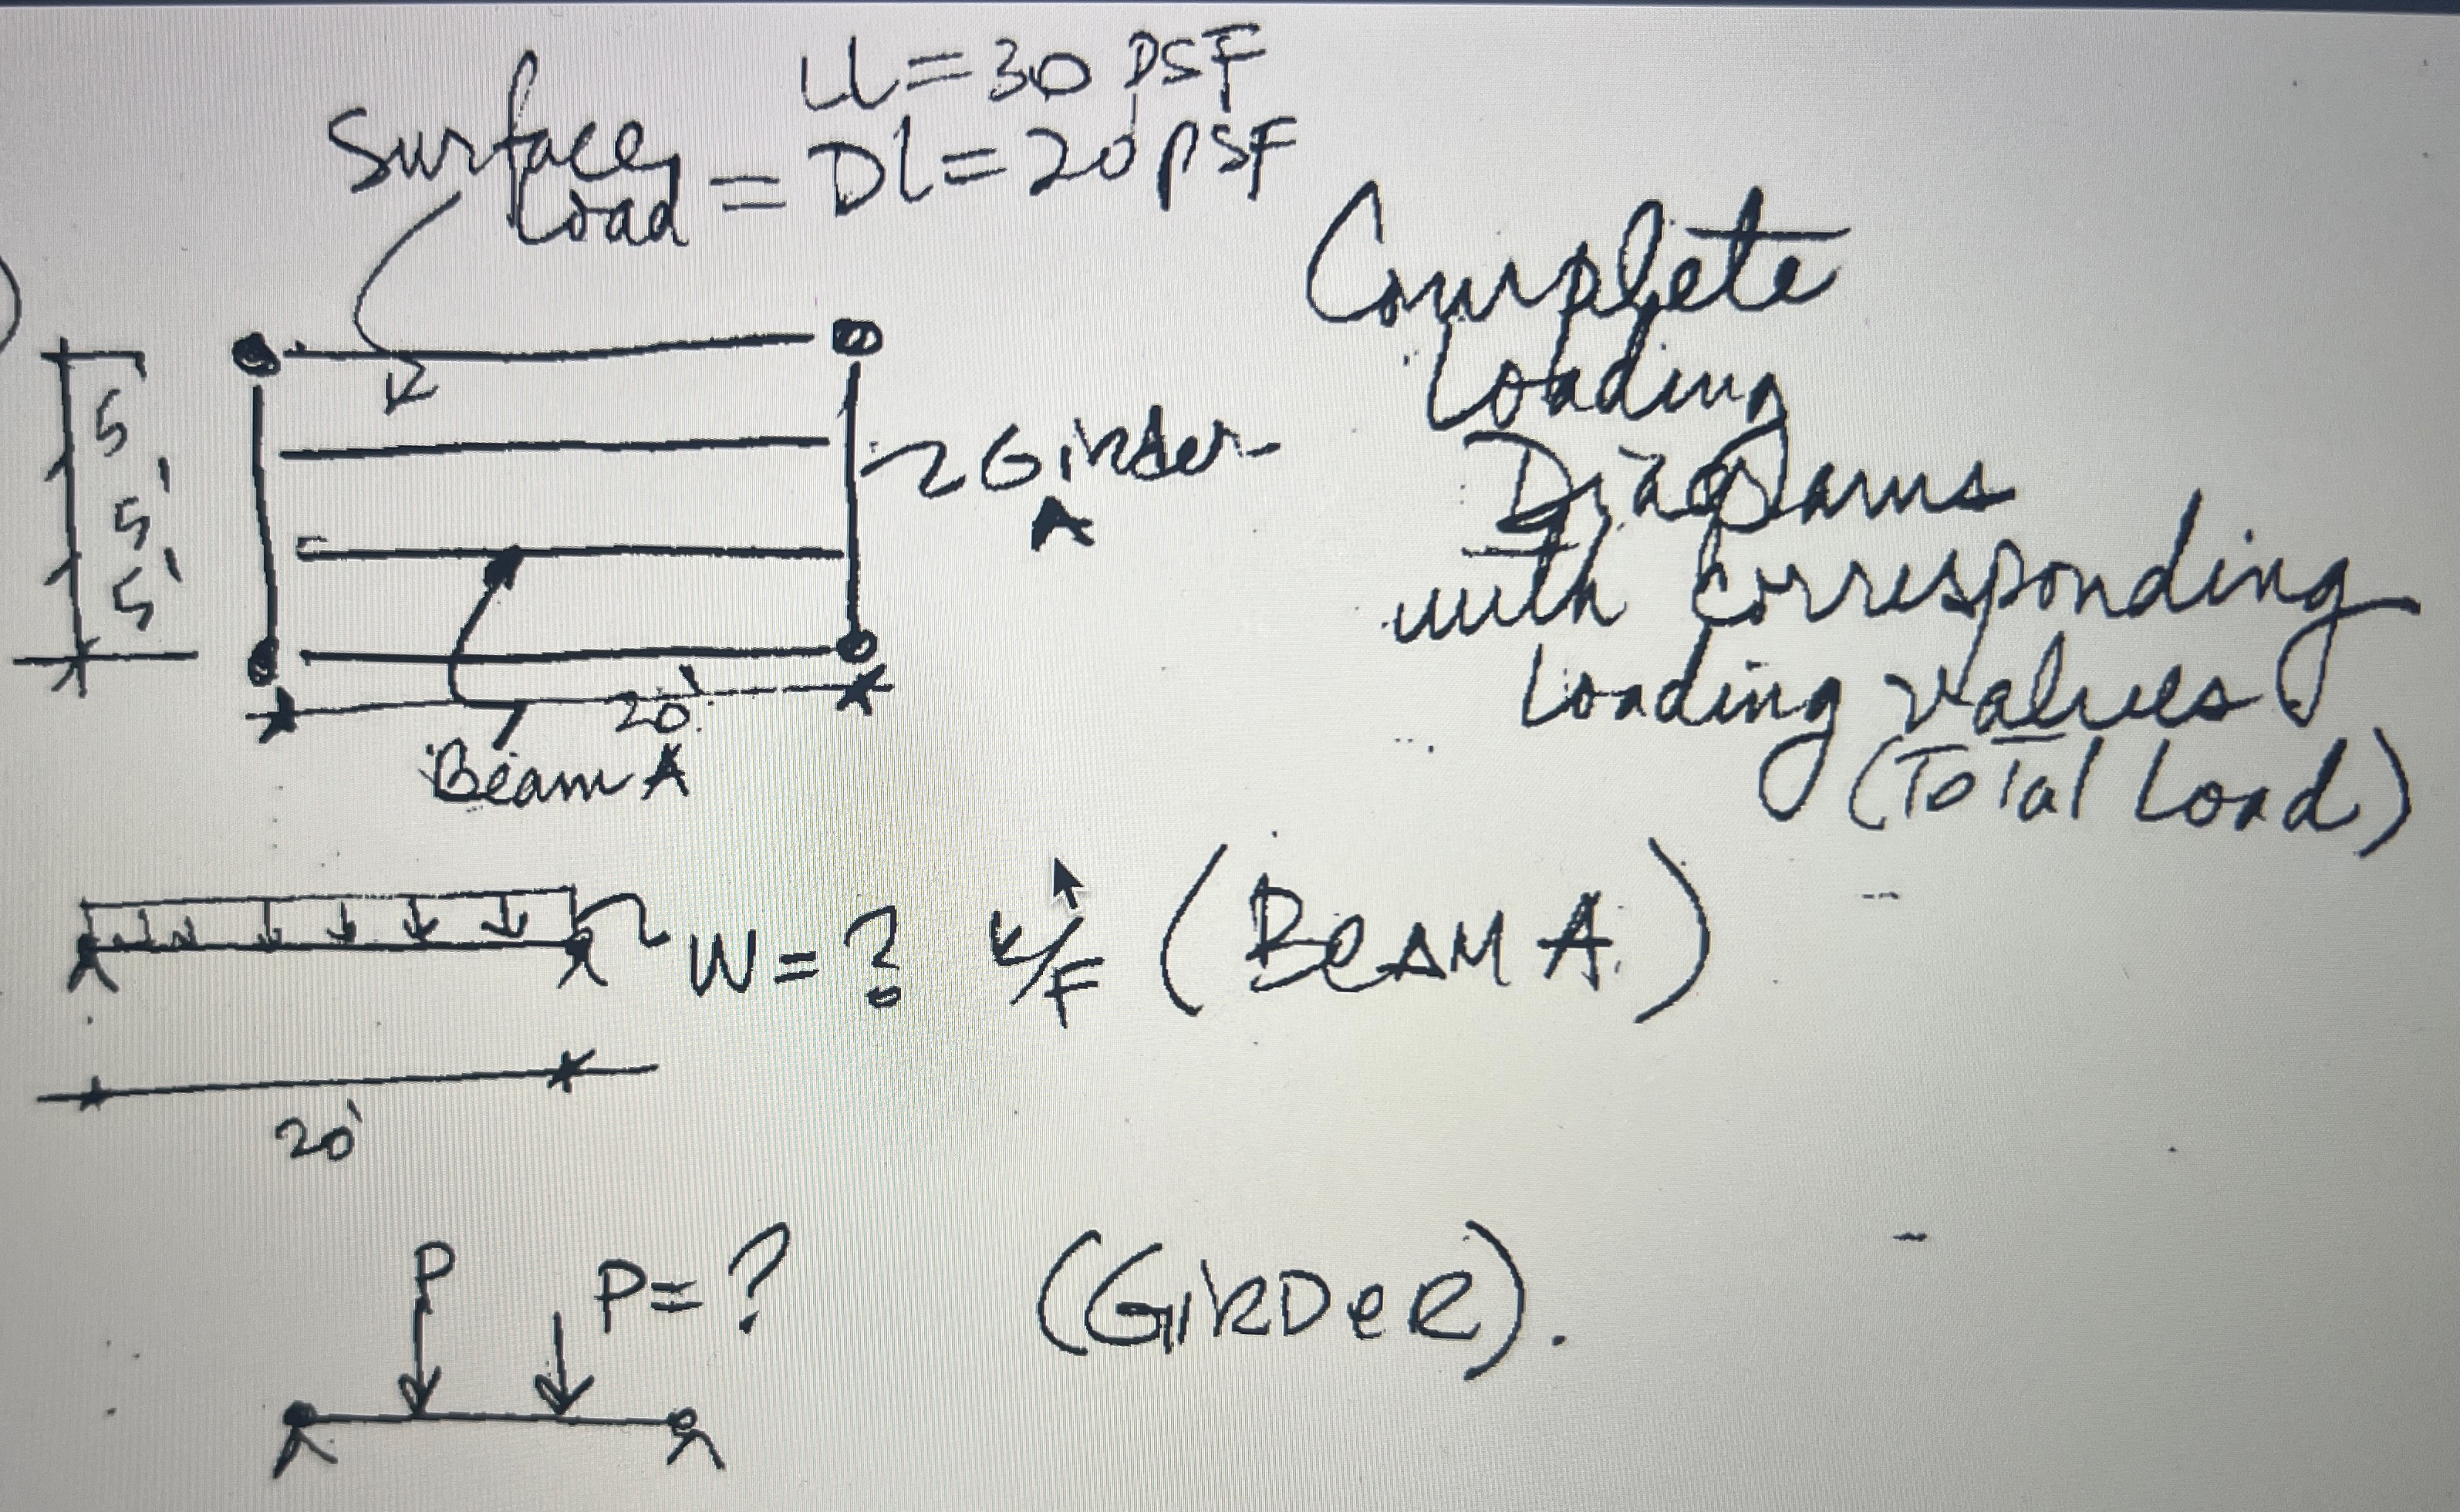 LL = 30 PSF
Surface Load = DL = 20 PSF
Complete
Loading
Diagrams
with Corresponding
Loading Values
(Total Load)
5
5'
5'
Girder
A
20'
Beam A
W = ? K/F (BEAM A)
20'
P
P = ? (GIRDER).